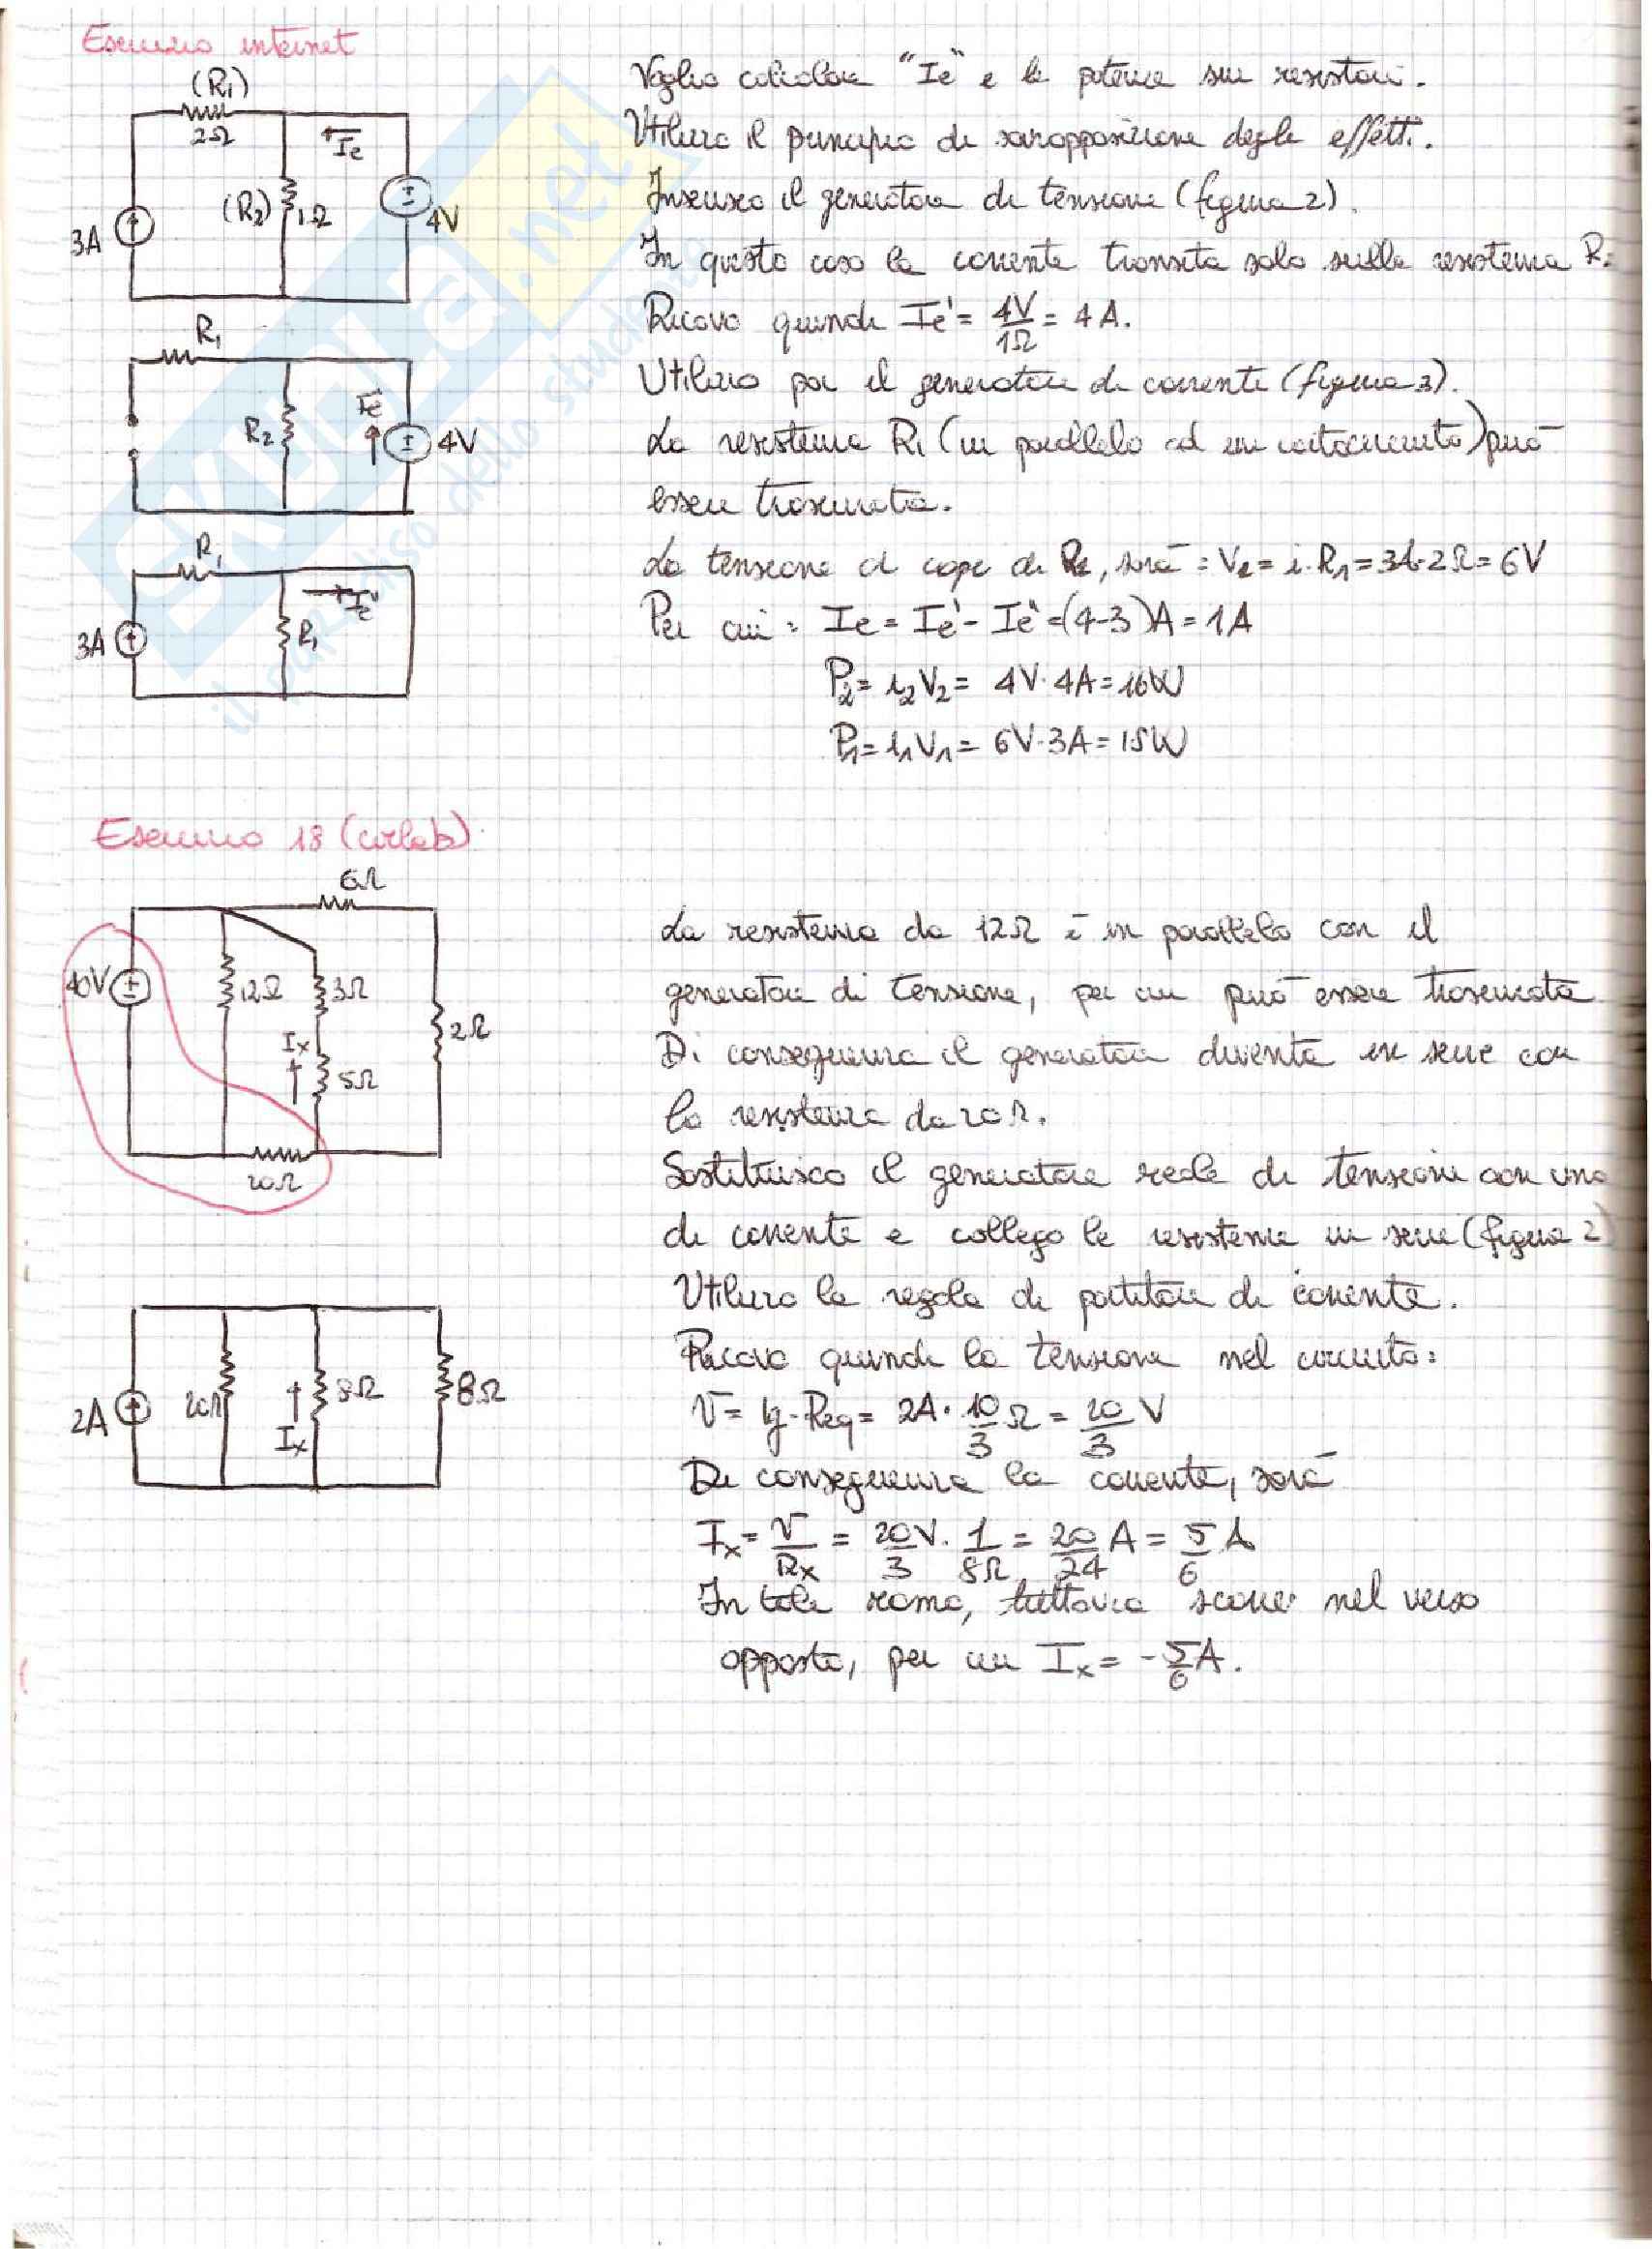 Esercizio internet
(R1)
2Ω
Ie
(R2)
1Ω
3A
4V
Voglio calcolare "Ie" e le potenze sui resistori.
Utilizzo il principio di sovrapposizione degli effetti.
Inserisco il generatore di tensione (figura 2).
In questo caso la corrente transita solo sulla resistenza R2
Ricavo quindi Ie' = 4V/1Ω = 4A.
Utilizzo poi il generatore di corrente (figura 3).
La resistenza R1 (in parallelo ad un cortocircuito) può
essere trascurata.
La tensione ai capi di R2, sarà: V2 = i·R1 = 3A·2Ω = 6V
Per cui: Ie = Ie' - Ie" = (4-3)A = 1A
P2 = i2V2 = 4V·4A = 16W
P1 = i1V1 = 6V·3A = 18W
R1
R2
Ie'
4V
R1
Ie"
3A
R1
SKUOLA.net
il paradiso dello studente
Esercizio 18 (cirlab)
6Ω
40V
12Ω
3Ω
2Ω
Ix
5Ω
20Ω
La resistenza da 12Ω è in parallelo con il
generatore di tensione, per cui può essere trascurata
Di conseguenza il generatore diventa in serie con
la resistenza da 20Ω.
Sostituisco il generatore reale di tensione con uno
di corrente e collego le resistenze in serie (figura 2)
Utilizzo la regola di partitore di corrente.
Ricavo quindi la tensione nel circuito:
V = Ig·Req = 2A·10/3 Ω = 20/3 V
Di conseguenza la corrente, sarà
Ix = V/Rx = 20/3 V · 1/8Ω = 20/24 A = 5/6 A
In tale ramo, tuttavia scorre nel verso
opposto, per cui Ix = -5/6 A.
2A
20Ω
8Ω
8Ω
Ix